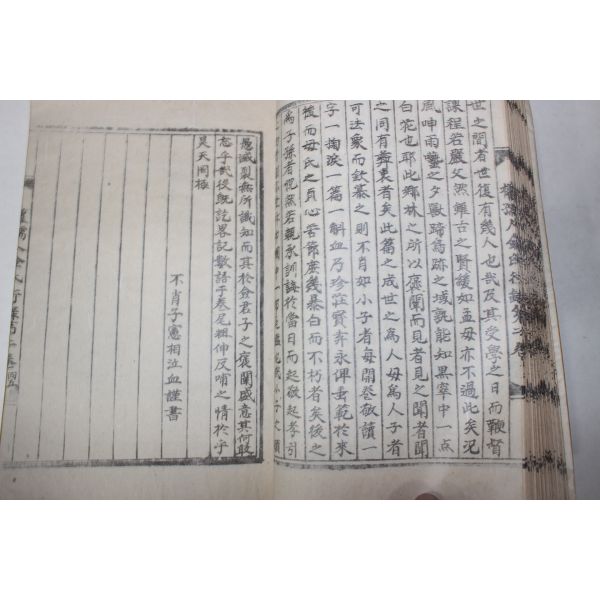 世之閒者世復有幾人也哉及其受學之日而鞭督
課程若嚴父然雖古之賢媛如孟母亦不過此矣況
風呻雨囈之夕獸蹄鳥跡之域孰能知黑窣中一点
白花也耶此鄉林之所以褒闡而見者見之聞者聞
之同有彜衷者矣此篇之成世之為人母為人子者
可法象而欽慕之則不肖如小子者每開卷敬讀一
字一掬淚一篇一斛血乃珍莊寶弆永俾垂範於來
後而母氏之貞心苦節庶幾暴白而不朽者矣後之
為子孫者怳然若親承訓誨於當日而起敬起孝引
小子之
愚滅裂無所識知而其於僉君子之褒闡盛意其何敢
忘乎哉役旣訖畧記數語于卷尾粗伸反哺之情於乎
昊天罔極
不肖子憲相泣血謹書